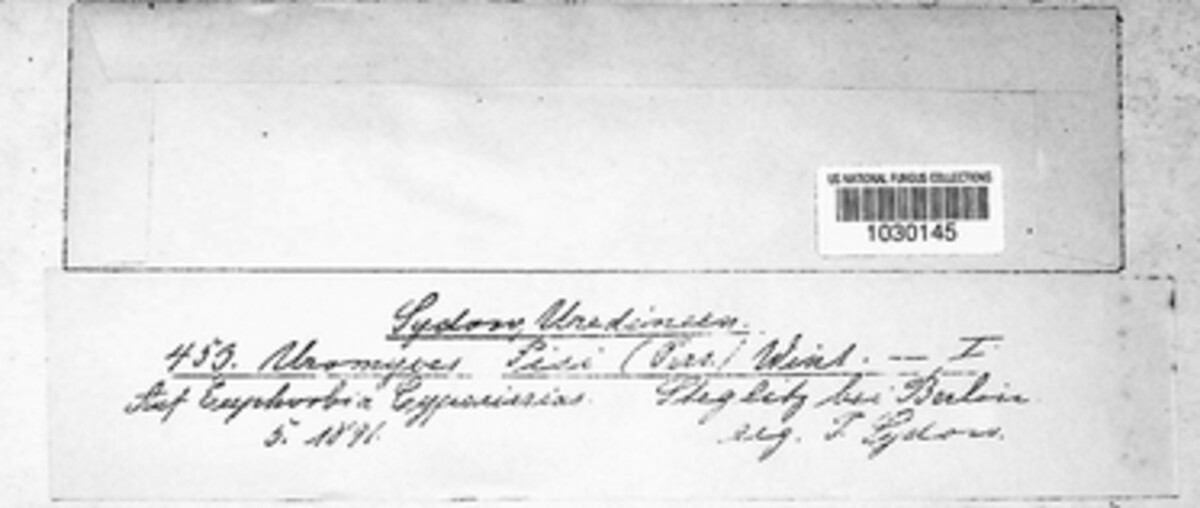 US NATIONAL FUNGUS COLLECTIONS
1030145
Sydow, Uredineen.
453. Uromyces Pisi (Pers.) Wint. — I
Auf Euphorbia Cyparissias. Steglitz bei Berlin
5. 1891. leg. P. Sydow.